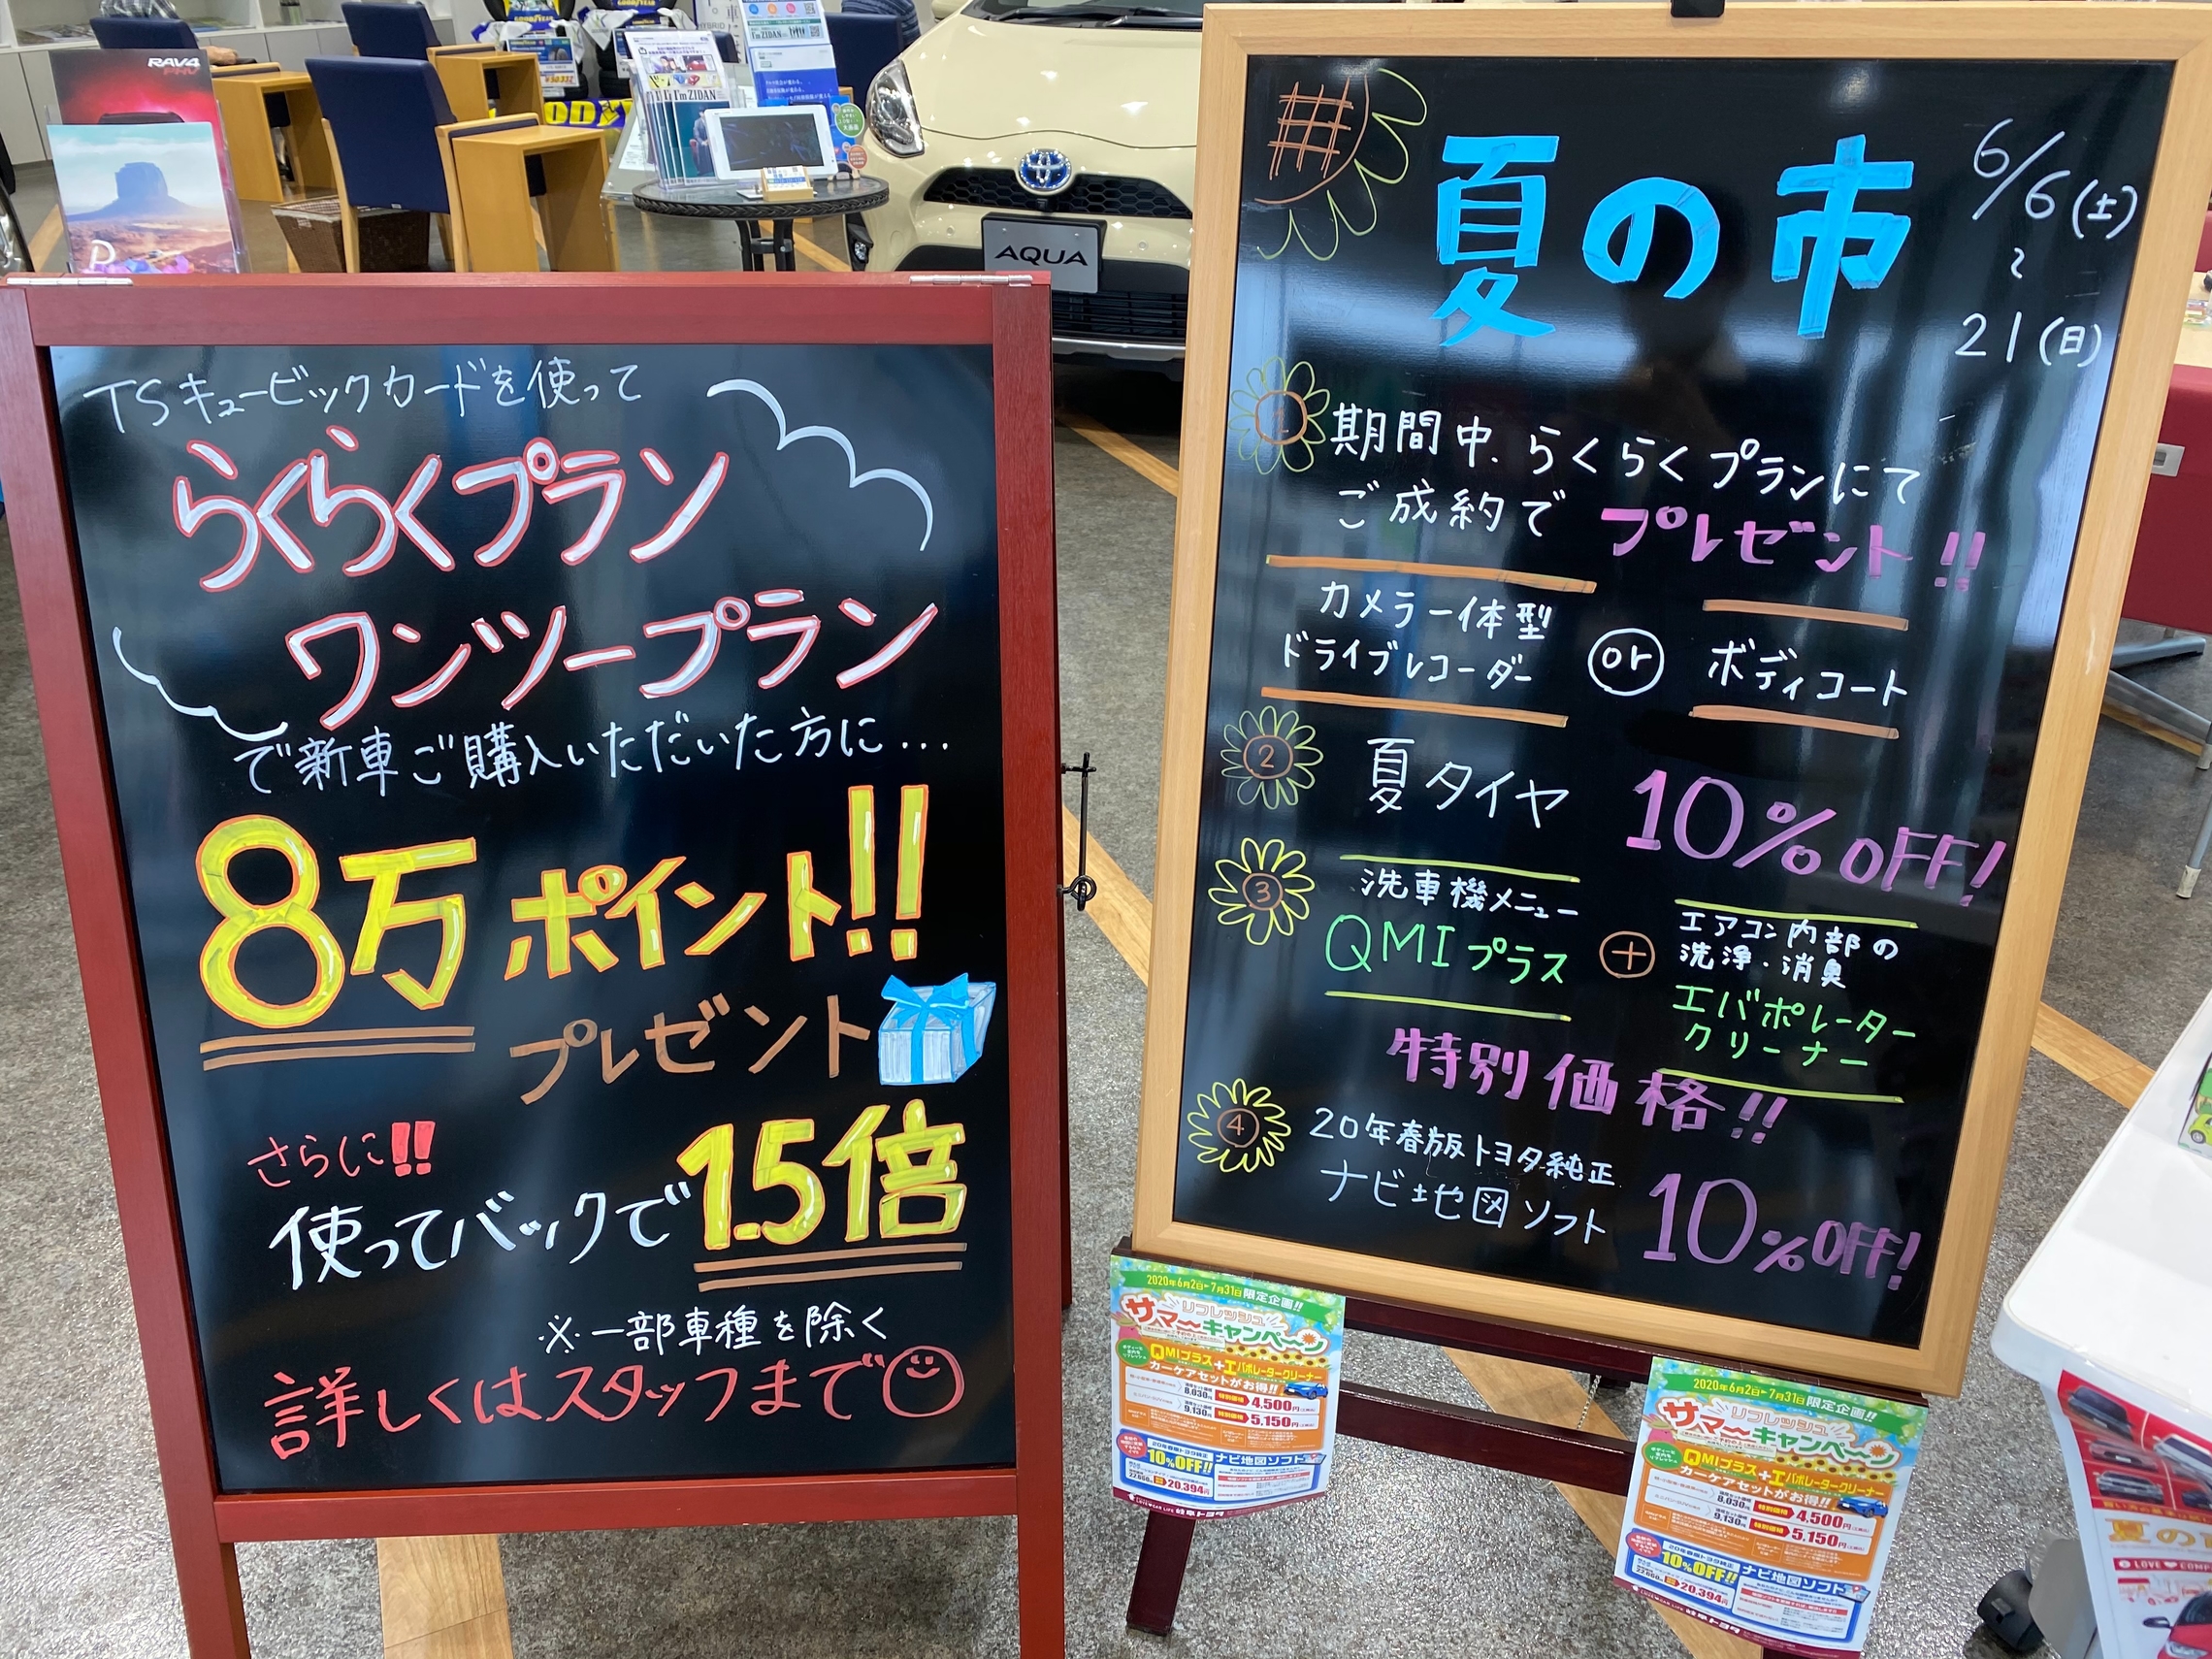 TSキュービックカードを使って
らくらくプラン
ワンツープラン
で新車ご購入いただいた方に...
8万ポイント!!
プレゼント
さらに!!
使ってバックで1.5倍
※一部車種を除く
詳しくはスタッフまで
夏の市
6/6(土)
~
21(日)
1
期間中、らくらくプランにて
ご成約でプレゼント!!
カメラ一体型
ドライブレコーダー
or
ボディコート
2
夏タイヤ 10%OFF!
3
洗車機メニュー
QMIプラス
+
エアコン内部の
洗浄・消臭
エバポレーター
クリーナー
特別価格!!
4
20年春版トヨタ純正
ナビ地図ソフト
10%OFF!
RAV4
PHV
I'm ZIDAN
AQUA
2020年6月2日~7月31日限定企画!!
リフレッシュ
サマーキャンペーン
QMIプラス+エバポレータークリーナー
カーケアセットがお得!!
8,030円
特別価格
4,500円
9,130円
特別価格
5,150円
20年春版トヨタ純正
10%OFF!!
ナビ地図ソフト
20,394円
岐阜トヨタ
2020年6月2日~7月31日限定企画!!
リフレッシュ
サマーキャンペーン
QMIプラス+エバポレータークリーナー
カーケアセットがお得!!
8,030円
特別価格
4,500円
9,130円
特別価格
5,150円
20年春版トヨタ純正
10%OFF!!
ナビ地図ソフト
20,394円
岐阜トヨタ